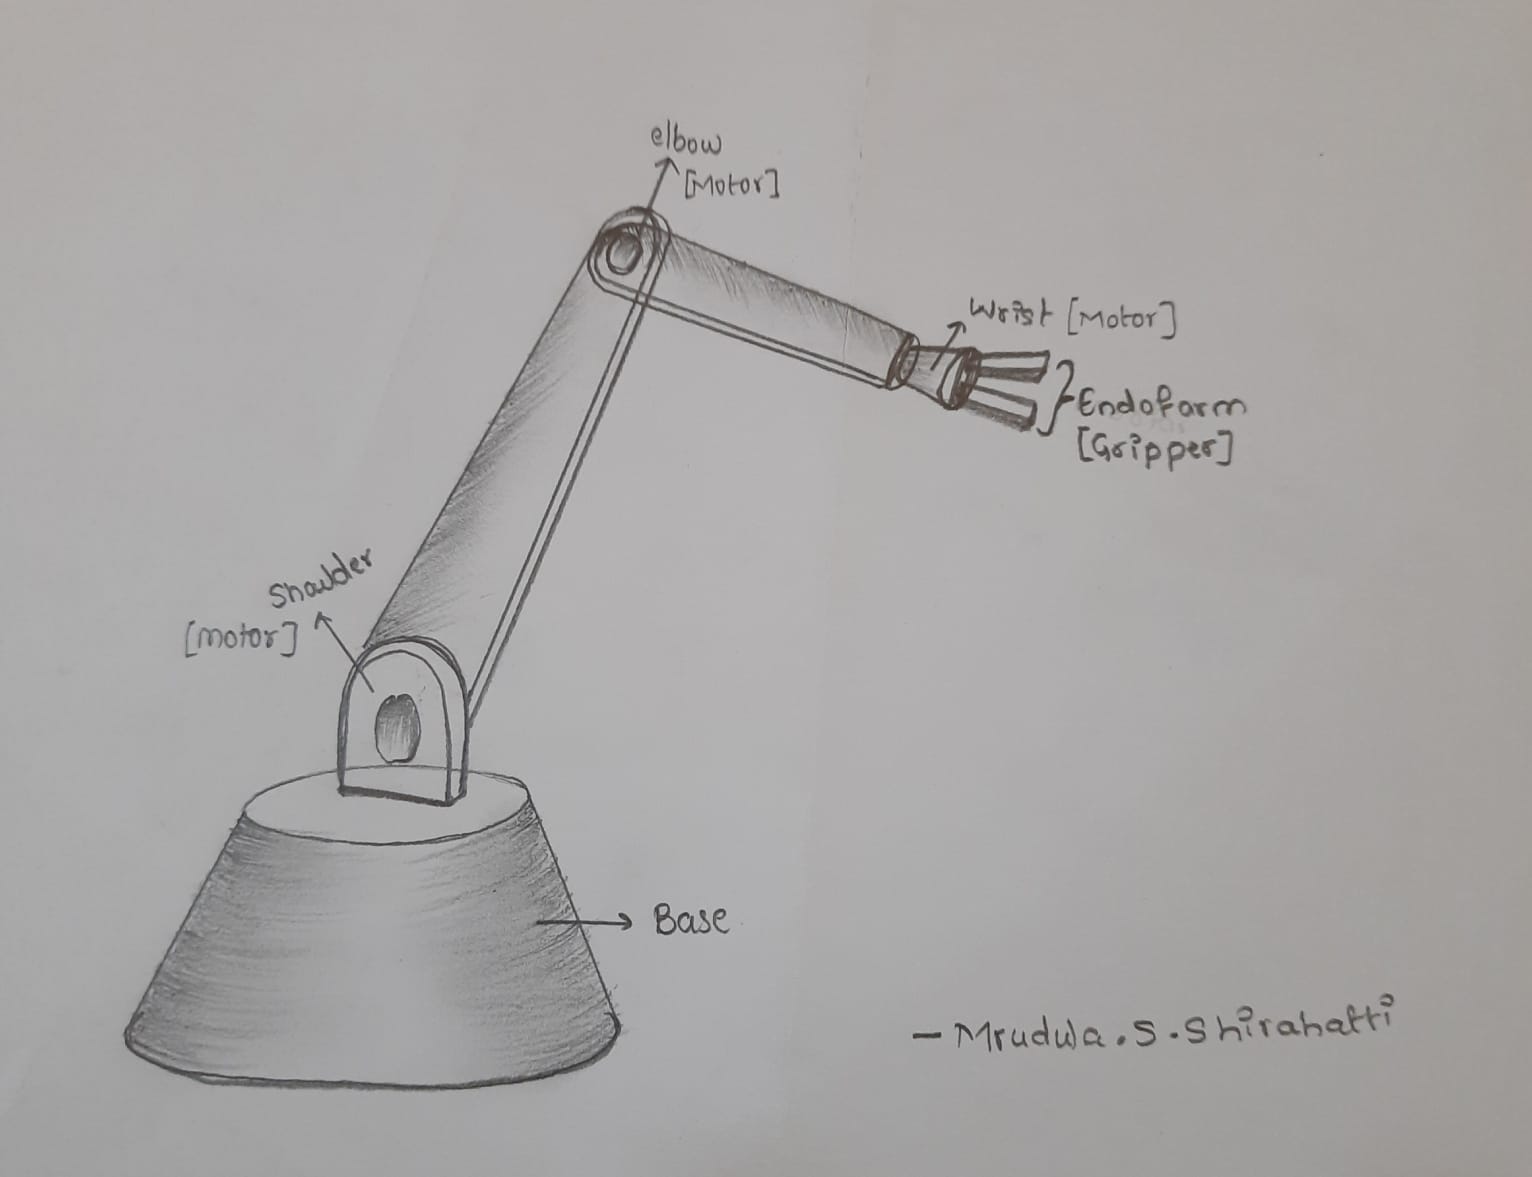 elbow
[Motor]
Wrist [Motor]
Endofarm
[Gripper]
Shoulder
[motor]
Base
- Mrudula.S.Shirahatti